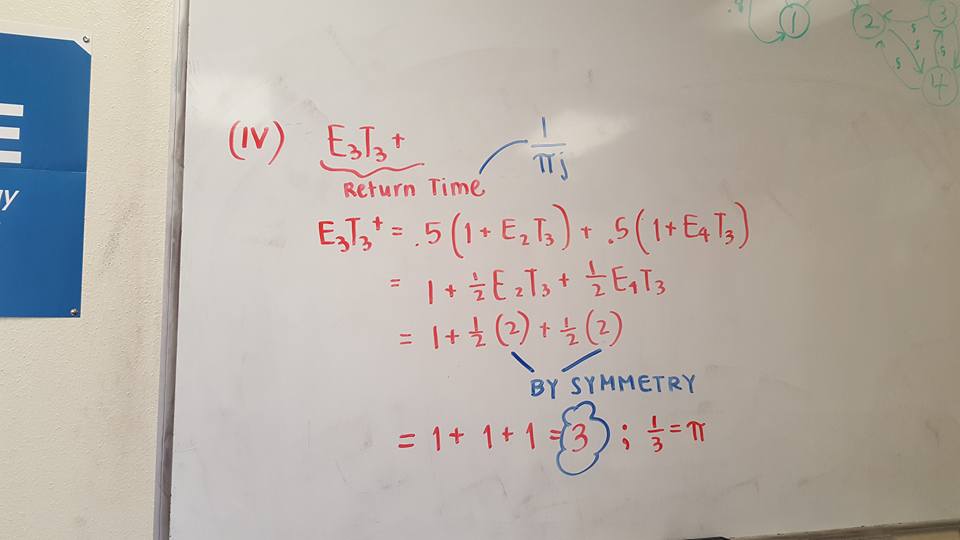 .4 1 2 .5 3
.5 .5 .5 4
(IV) E₃T₃⁺ 1/πj
Return Time
E₃T₃⁺ = .5(1 + E₂T₃) + .5(1 + E₄T₃)
= 1 + 1/2 E₂T₃ + 1/2 E₄T₃
= 1 + 1/2 (2) + 1/2 (2)
BY SYMMETRY
= 1 + 1 + 1 = 3 ; 1/3 = π